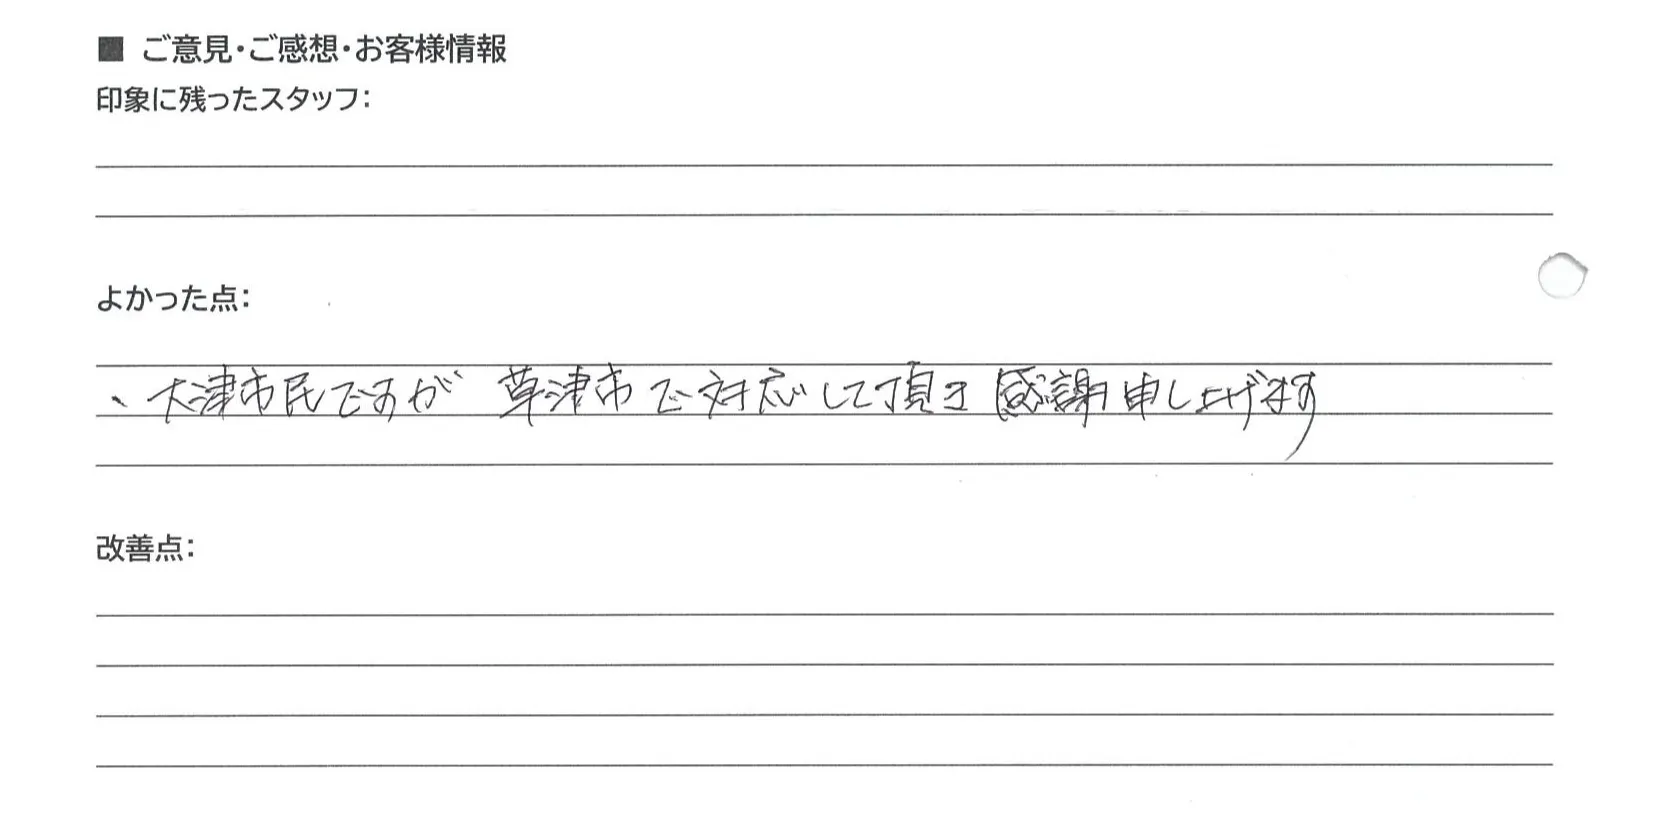 ■ ご意見・ご感想・お客様情報
印象に残ったスタッフ：
よかった点：
、大津市民ですが 草津市で対応して頂き 感謝申し上げます
改善点：